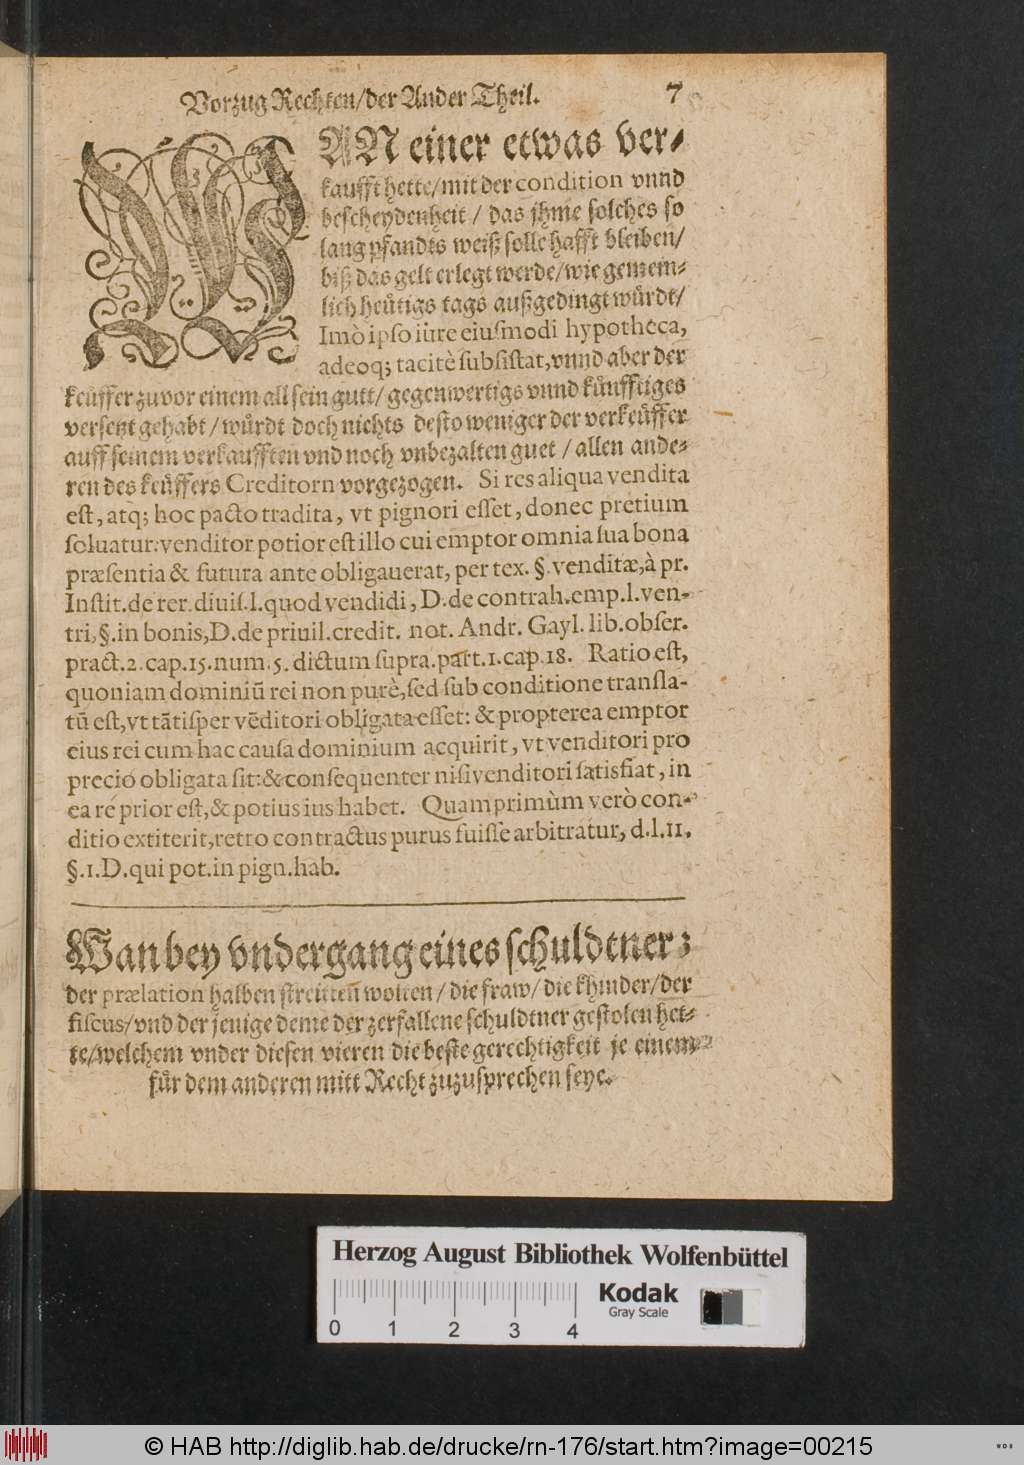 Vorzug Rechten/der Ander Theil. 7
WAN einer etwas ver-
kaufft hette/mit der condition vnnd
bescheydenheit / das jhme solches so
lang pfandts weiß solle hafft bleiben/
biß das gelt erlegt werde/wie gemein-
lich heütigs tags außgedingt würdt/
Imò ipso iure eiusmodi hypotheca,
adeoq; tacitè subsistat, vnnd aber der
keüffer zuvor einem all sein gutt/ gegenwertigs vnnd künfftiges
versetzt gehabt/ würdt doch nichts desto weniger der verkeüffer
auff seinem verkaufften vnd noch vnbezalten guet / allen ande-
ren des keüffers Creditorn vorgezogen. Si res aliqua vendita
est, atq; hoc pacto tradita, vt pignori esset, donec pretium
soluatur: venditor potior est illo cui emptor omnia sua bona
præsentia & futura ante obligauerat, per tex. §. venditæ, à pr.
Instit. de rer. diuis. l. quod vendidi, D. de contrah. emp. l. ven-
tri, §. in bonis, D. de priuil. credit. not. Andr. Gayl. lib. obser.
pract. 2. cap. 15. num. 5. dictum supra. part. 1. cap. 18. Ratio est,
quoniam dominiũ rei non purè, sed sub conditione transla-
tũ est, vt tãtisper vẽditori obligata esset: & propterea emptor
eius rei cum hac causa dominium acquirit, vt venditori pro
precio obligata sit: & consequenter nisi venditori satisfiat, in
ea re prior est, & potius ius habet. Quamprimùm verò con-
ditio extiterit, retro contractus purus fuisse arbitratur, d. l. 11.
§. 1. D. qui pot. in pign. hab.
Wan bey vndergang eines schuldtner:
der prælation halben streitten wolten / die fraw/ die khinder/der
fiscus/ vnd der jenige deme der zerfallene schuldtner gestolen het-
te/welchem vnder diesen vieren die beste gerechtigkeit je einem
für dem anderen mitt Recht zuzusprechen seye.
Herzog August Bibliothek Wolfenbüttel
Kodak
Gray Scale
0 1 2 3 4
© HAB http://diglib.hab.de/drucke/rn-176/start.htm?image=00215